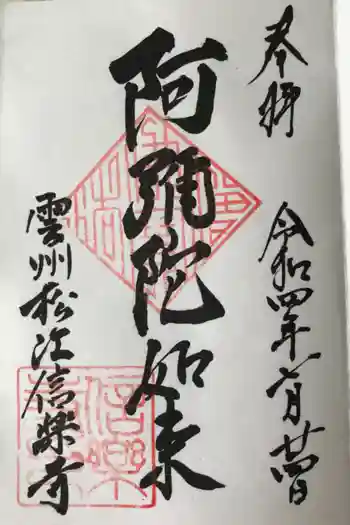 奉拝
令和四年六月廿四日
阿彌陀如来
雲州松江信楽寺